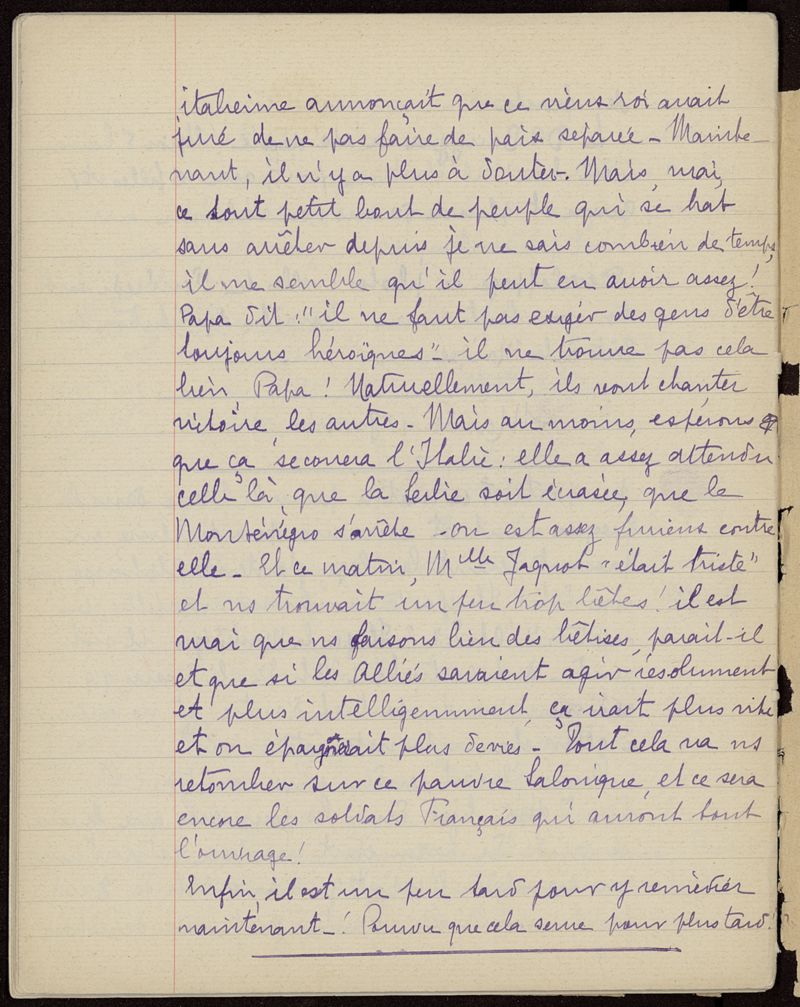 italienne annonçait que ce vieux roi avait
juré de ne pas faire de paix séparée - Mainte-
nant, il n'y a plus à douter. Mais, vrai,
ce tout petit bout de peuple qui se bat
sans arrêter depuis je ne sais combien de temps,
il me semble qu'il peut en avoir assez !
Papa dit : "il ne faut pas exiger des gens d'être
toujours héroïques" - il ne trouve pas cela
bien, Papa ! Naturellement, ils vont chanter
victoire les autres - Mais au moins, espérons
que ça secouera l'Italie : elle a assez attendu
celle là, que la Serbie soit écrasée, que le
Monténégro s'arrête - on est assez furieux contre
elle - Et ce matin, Mlle Jaquot "était triste"
et ns trouvait un peu trop bêtes ! il est
vrai que ns faisons bien des bêtises, parait-il
et que si les Alliés savaient agir résolument
et plus intelligemment, ça irait plus vite
et on épargnerait plus de vies - Tout cela va ns
retomber sur ce pauvre Salonique, et ce sera
encore les soldats Français qui auront tout
l'ouvrage !
Enfin, il est un peu tard pour y remédier
maintenant - ! Pourvu que cela serve pour plus tard !